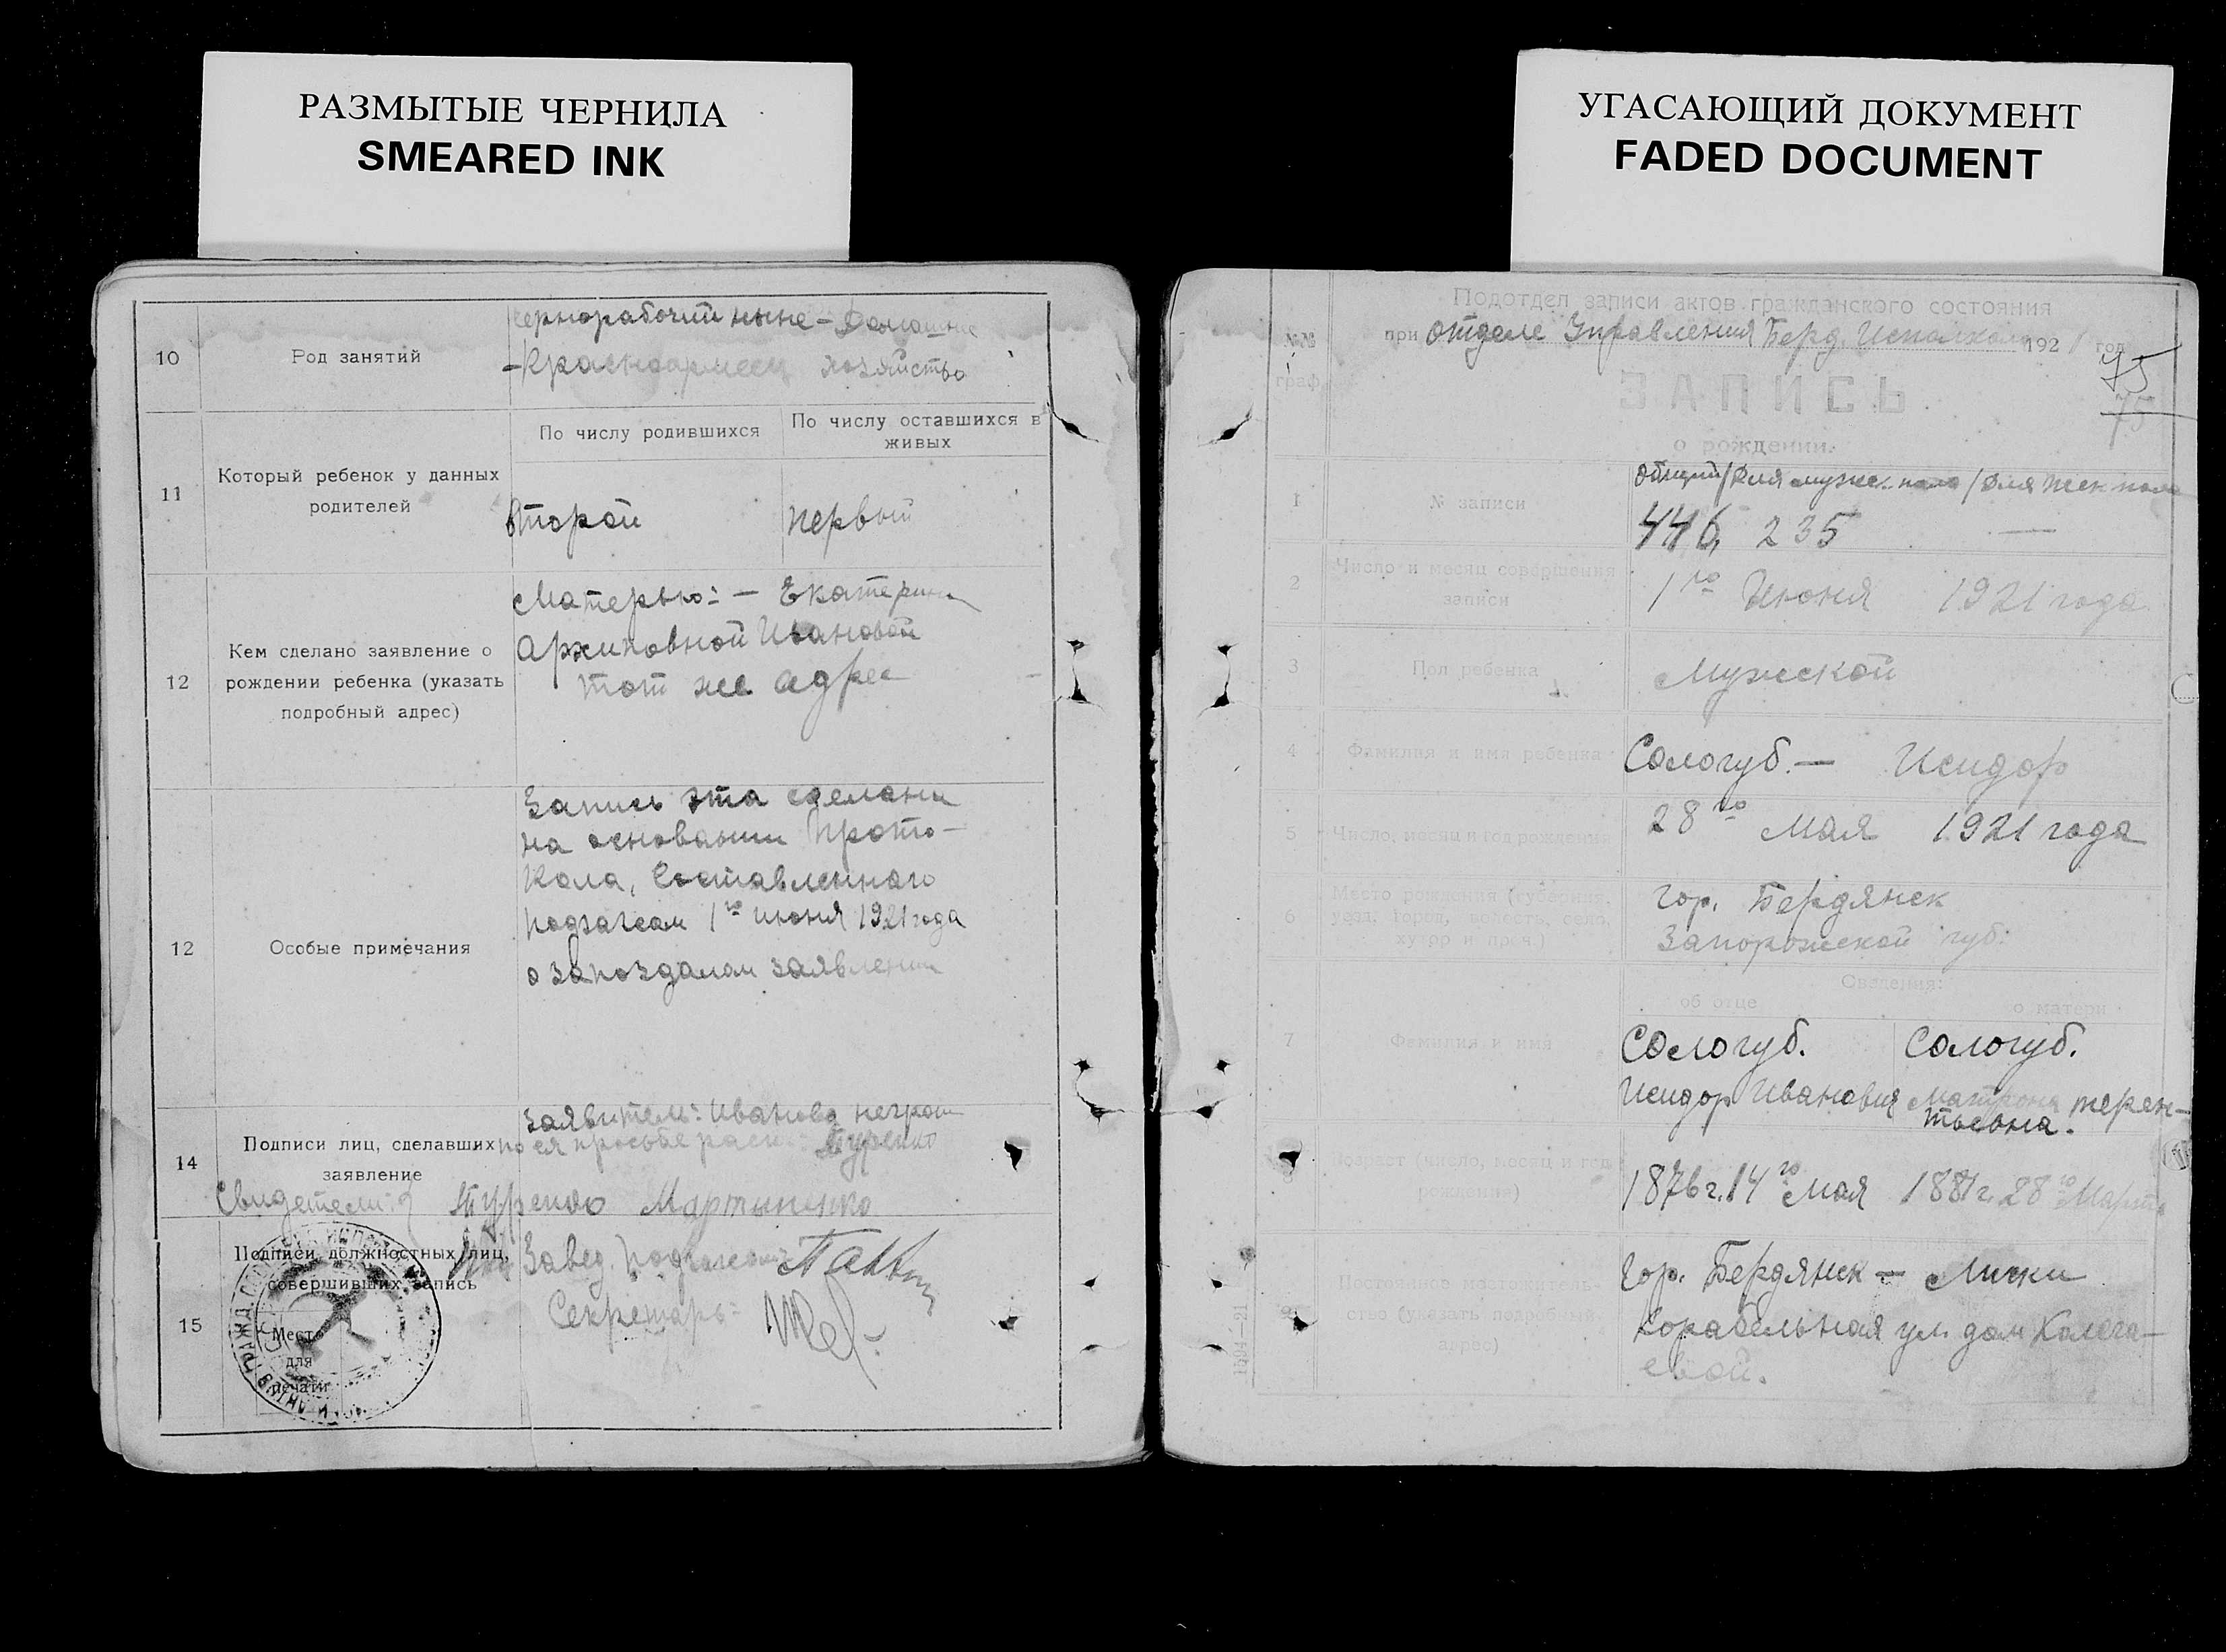 РАЗМЫТЫЕ ЧЕРНИЛА
SMEARED INK
10
Род занятий
чернорабочий ныне – Домашнее
– Красноармеец хозяйство
11
Который ребенок у данных
родителей
По числу родившихся
По числу оставшихся в
живых
второй
первый
12
Кем сделано заявление о
рождении ребенка (указать
подробный адрес)
Матерью: – Екатерин
Архиповной Ивановой
тот же адрес
12
Особые примечания
Запись эта сделана
на основании прото-
кола, Составленного
подзагсом 1го июня 1921 года
о запоздалом заявлении
14
Подписи лиц, сделавших
заявление
Заявитель: Иванова неграм
по ея просьбе расп.: Туренко
Свидетели: Туренко Мартыненко
15
Подписи должностных лиц,
совершивших запись
Место
для
печати
Завед. подзагсом
Секретарь:
УГАСАЮЩИЙ ДОКУМЕНТ
FADED DOCUMENT
№№
граф.
Подотдел записи актов гражданского состояния
при отделе Управления Берд. Исполкома 1921 год
75
75
ЗАПИСЬ
о рождении.
1
№ записи
общий/для мужск. пола/для жен пола
446, 235 —
2
Число и месяц совершения
записи
1го Июня 1921 года
3
Пол ребенка
Мужской
4
Фамилия и имя ребенка
Сологуб. — Исидор
5
Число, месяц и год рождения
28го Мая 1921 года
6
Место рождения (губерния,
уезд, город, местеч., село,
хутор и проч.)
гор. Бердянск
Запорожской губ.
Сведения:
об отце
о матери
7
Фамилия и имя
Сологуб.
Исидор Иванович
Сологуб.
Матрона терен-
тьевна.
Возраст (число, месяц и год
рождения)
1876 г. 14го Мая
1881 г. 28го Марта
9
Постоянное местожитель-
ство (указать подробный
адрес)
Гор. Бердянск – Лиски
Корабельная ул. дом
евой.
1594—21